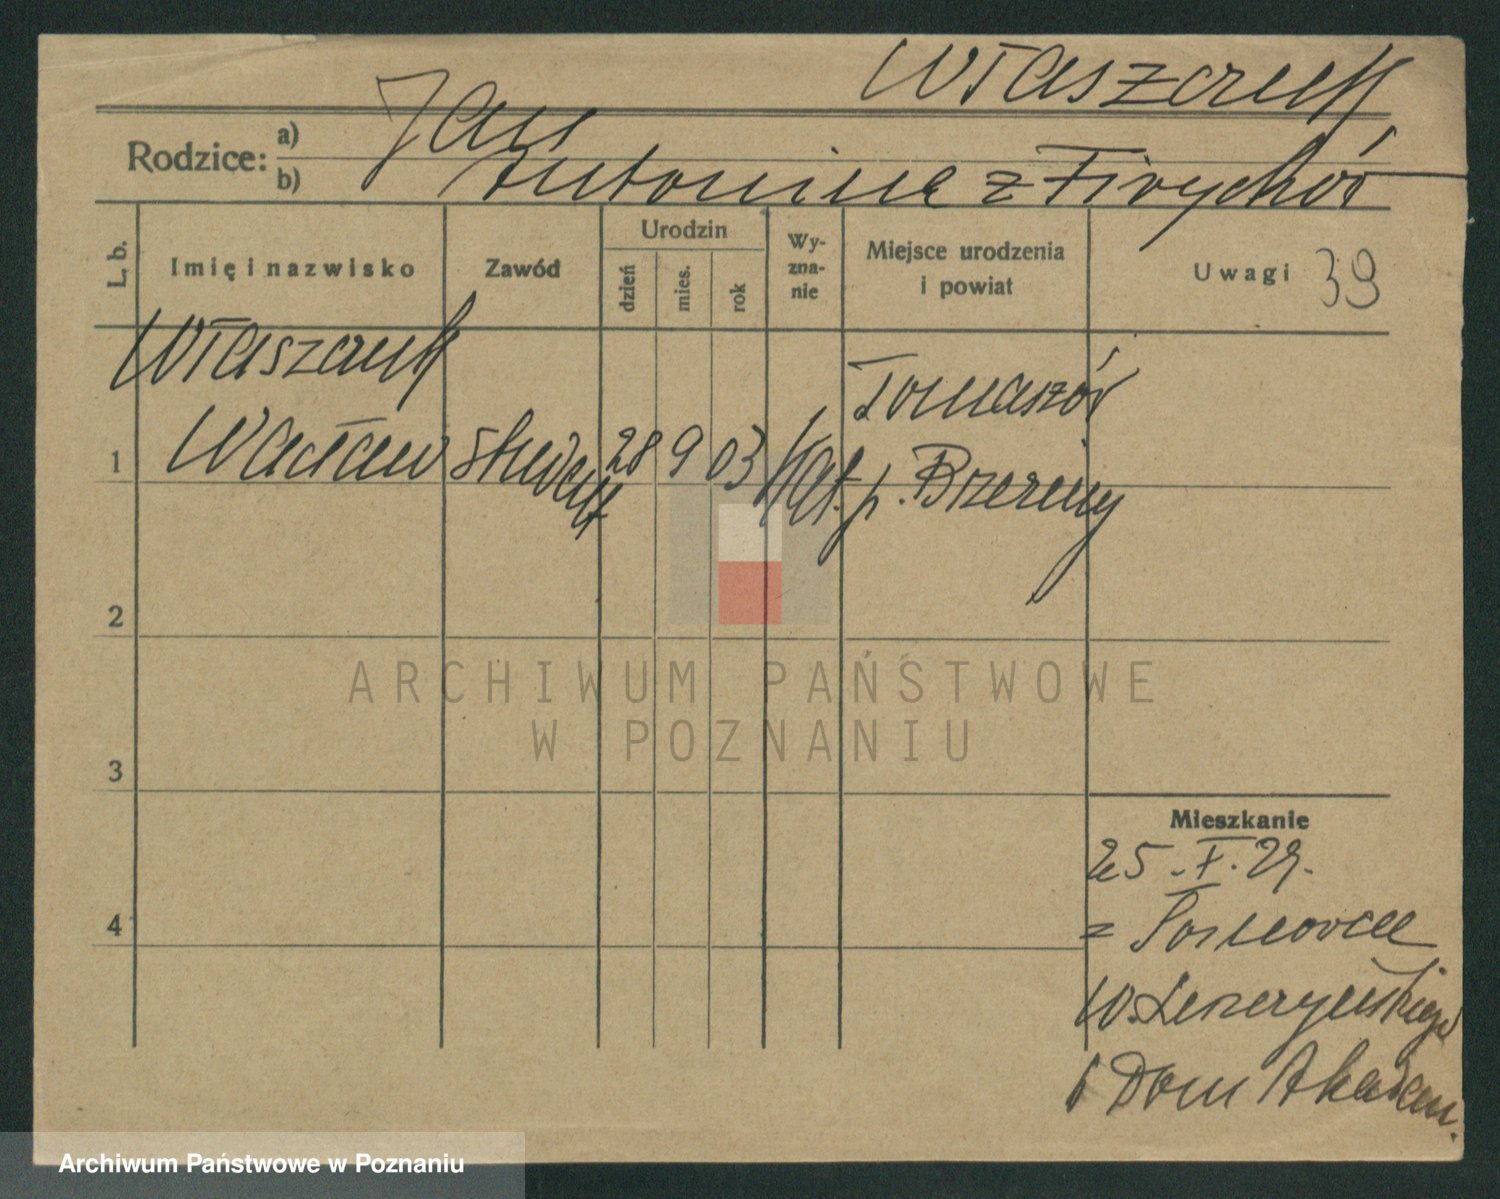 Właszczuk
Rodzice: a) Jan
b) Antonina z
L. b. Imię i nazwisko Zawód Urodzin Wy-zna-nie Miejsce urodzenia i powiat Uwagi 39
dzień mies. rok
Właszczuk Tomaszów
1 Wacław student 28 9 03 kat. p. Brzeziny
2
3
4
Mieszkanie
25.X.29.
z Torunia
W.
6 Dom Akadem.
ARCHIWUM PAŃSTWOWE
W POZNANIU
Archiwum Państwowe w Poznaniu